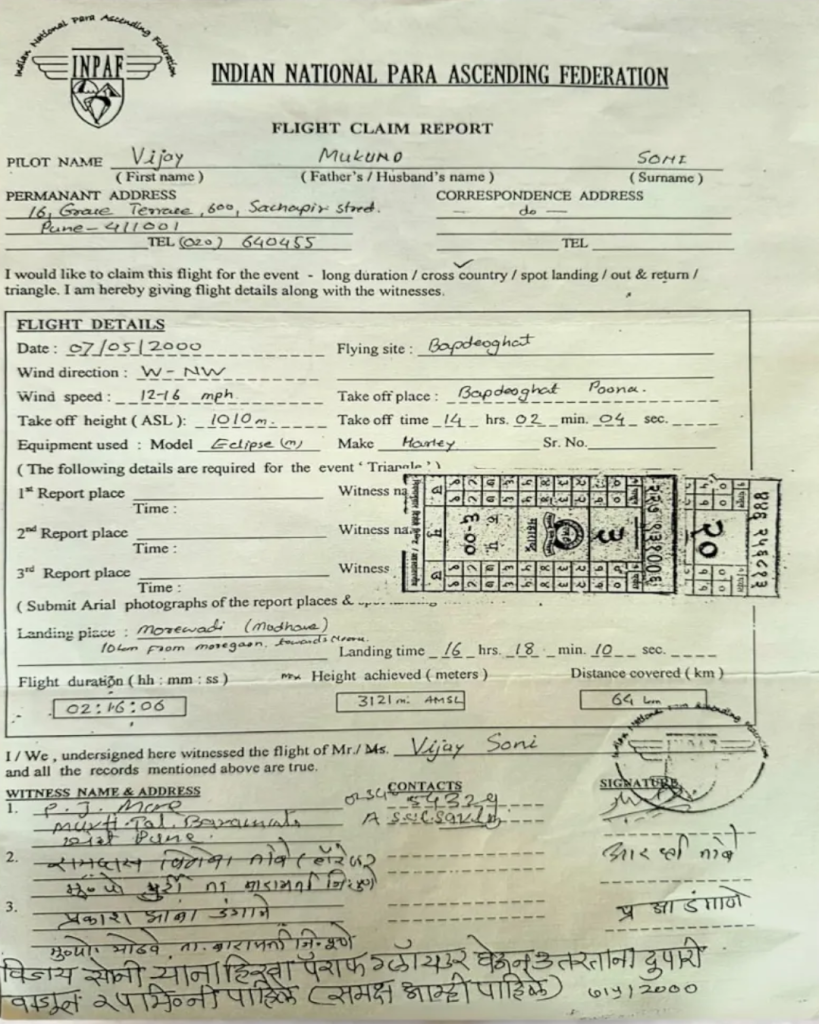 Indian National Para Ascending Federation
INPAF
INDIAN NATIONAL PARA ASCENDING FEDERATION
FLIGHT CLAIM REPORT
PILOT NAME Vijay MUKUND SONI
( First name ) ( Father's / Husband's name ) ( Surname )
PERMANANT ADDRESS CORRESPONDENCE ADDRESS
16, Grace Terrace, 600, Sachapir Street. — do —
Pune - 411001
TEL (020) 640455 TEL
I would like to claim this flight for the event - long duration / cross country / spot landing / out & return /
triangle. I am hereby giving flight details along with the witnesses.
FLIGHT DETAILS
Date : 07/05/2000 Flying site : Bapdeoghat
Wind direction : W - NW
Wind speed : 12-16 mph Take off place : Bapdeoghat Poona.
Take off height ( ASL ) : 1010 m. Take off time 14 hrs. 02 min. 04 sec.
Equipment used : Model Eclipse (m) Make Harley Sr. No.
( The following details are required for the event ' Triangle ' )
1st Report place Witness na
Time :
2nd Report place Witness na
Time :
3rd Report place Witness
Time :
( Submit Arial photographs of the report places &
Landing place : Morewadi
10km From moregaon, towards
Landing time 16 hrs. 18 min. 10 sec.
Flight duration ( hh : mm : ss ) Max Height achieved ( meters ) Distance covered ( km )
02:16:06 3121 m. AMSL 64 km
I / We , undersigned here witnessed the flight of Mr./ Ms. Vijay Soni
and all the records mentioned above are true.
WITNESS NAME & ADDRESS CONTACTS SIGNATURE
1. P. J. More
Murti. Tal. Baramati
Dist Pune.
2.
3. प्रकाश
मु.पो. मोढवे, ता. बारामती जि. पुणे
विजय सोनी यांना हिरवा ग्लॉयडर घेऊन उतरताना दुपारी
आम्ही पाहिले) 7/5/2000